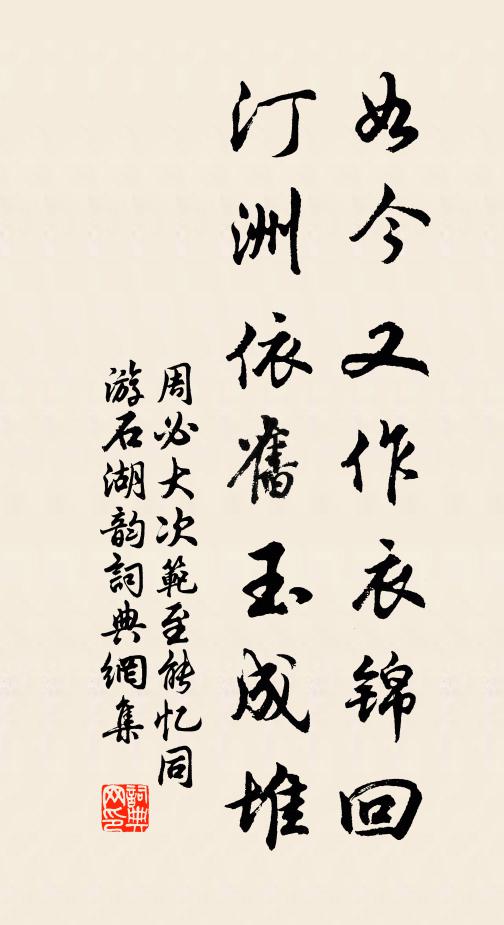 如今又作衣锦回
汀洲依舊玉成堆
周必大次範至能忆同
游石湖韵詞典網集
詞典网印